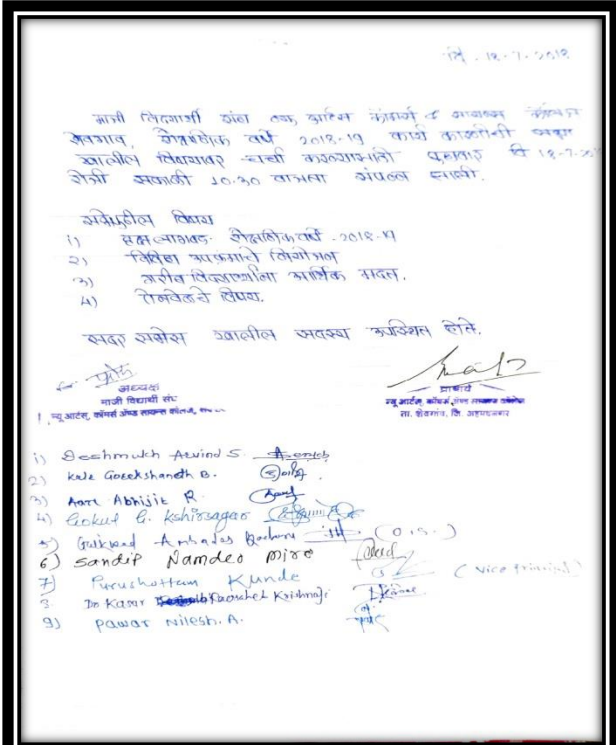 दि. 18-7-2018
माजी विद्यार्थी संघ न्यू आर्टस कॉमर्स व सायन्स कॉलेज
शेवगाव, शैक्षणिक वर्ष 2018-19 कार्य कारणीची
खालील विषयावर चर्चा करण्यासाठी बुधवार दि 18-7-20
रोजी सकाळी 10.30 वाजता संपन्न झाली.
सभेपुढील विषय
1) वृक्ष लागवड शैक्षणिक वर्ष - 2018-19
2) विविध उपक्रमांचे नियोजन
3) गरीब विद्यार्थ्यांना आर्थिक मदत.
4) ऐनवेळचे विषय.
सदर सभेस खालील सदस्य उपस्थित होते.
अध्यक्ष
माजी विद्यार्थी संघ
न्यू आर्टस्, कॉमर्स ॲण्ड सायन्स कॉलेज,
प्राचार्य
न्यू आर्टस्, कॉमर्स ॲण्ड सायन्स कॉलेज
ता. शेवगांव, जि. अहमदनगर
1) Deshmukh Arvind S.
2) Kale Gorekshanath B.
3) Aare Abhijit R.
4) Gokul G. Kshirsagar
5) Gaikwad Ambadas (O.S.)
6) Sandip Namdeo Mire
7) Purushottam Kunde (Vice Principal)
8 Dr Kasar Krishnaji
9) Pawar Nilesh. A.